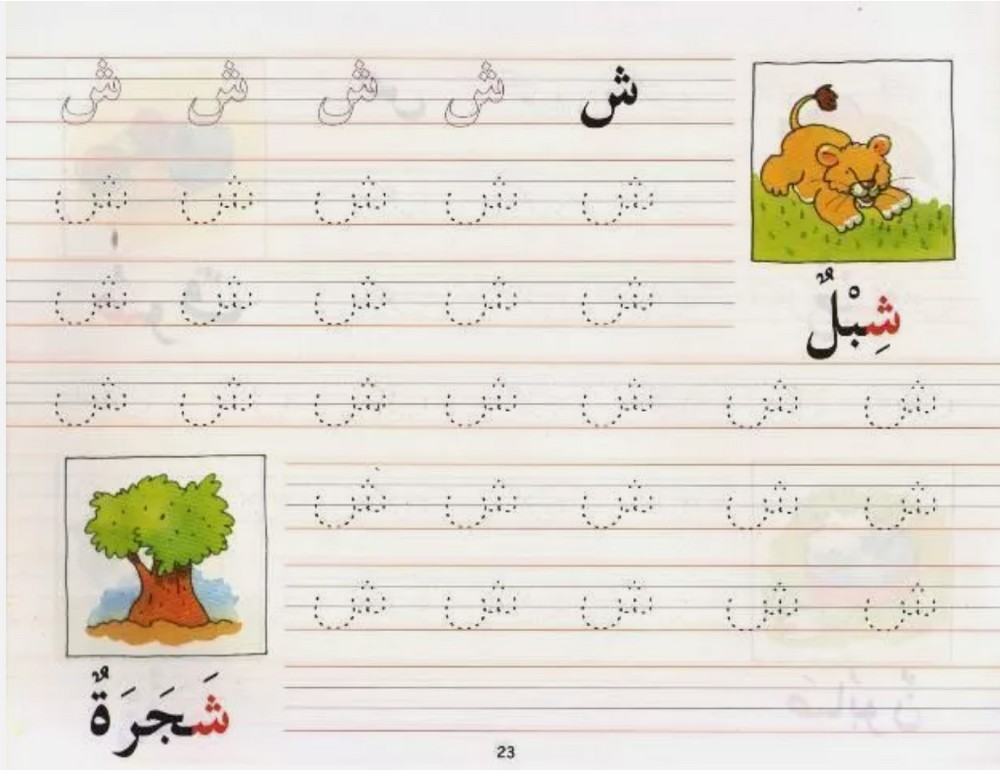 ش ش ش ش ش
ش ش ش ش ش
ش ش ش ش ش
شِبْلٌ
ش ش ش ش ش ش ش
ش ش ش ش ش
ش ش ش ش ش
شَجَرَةٌ
23